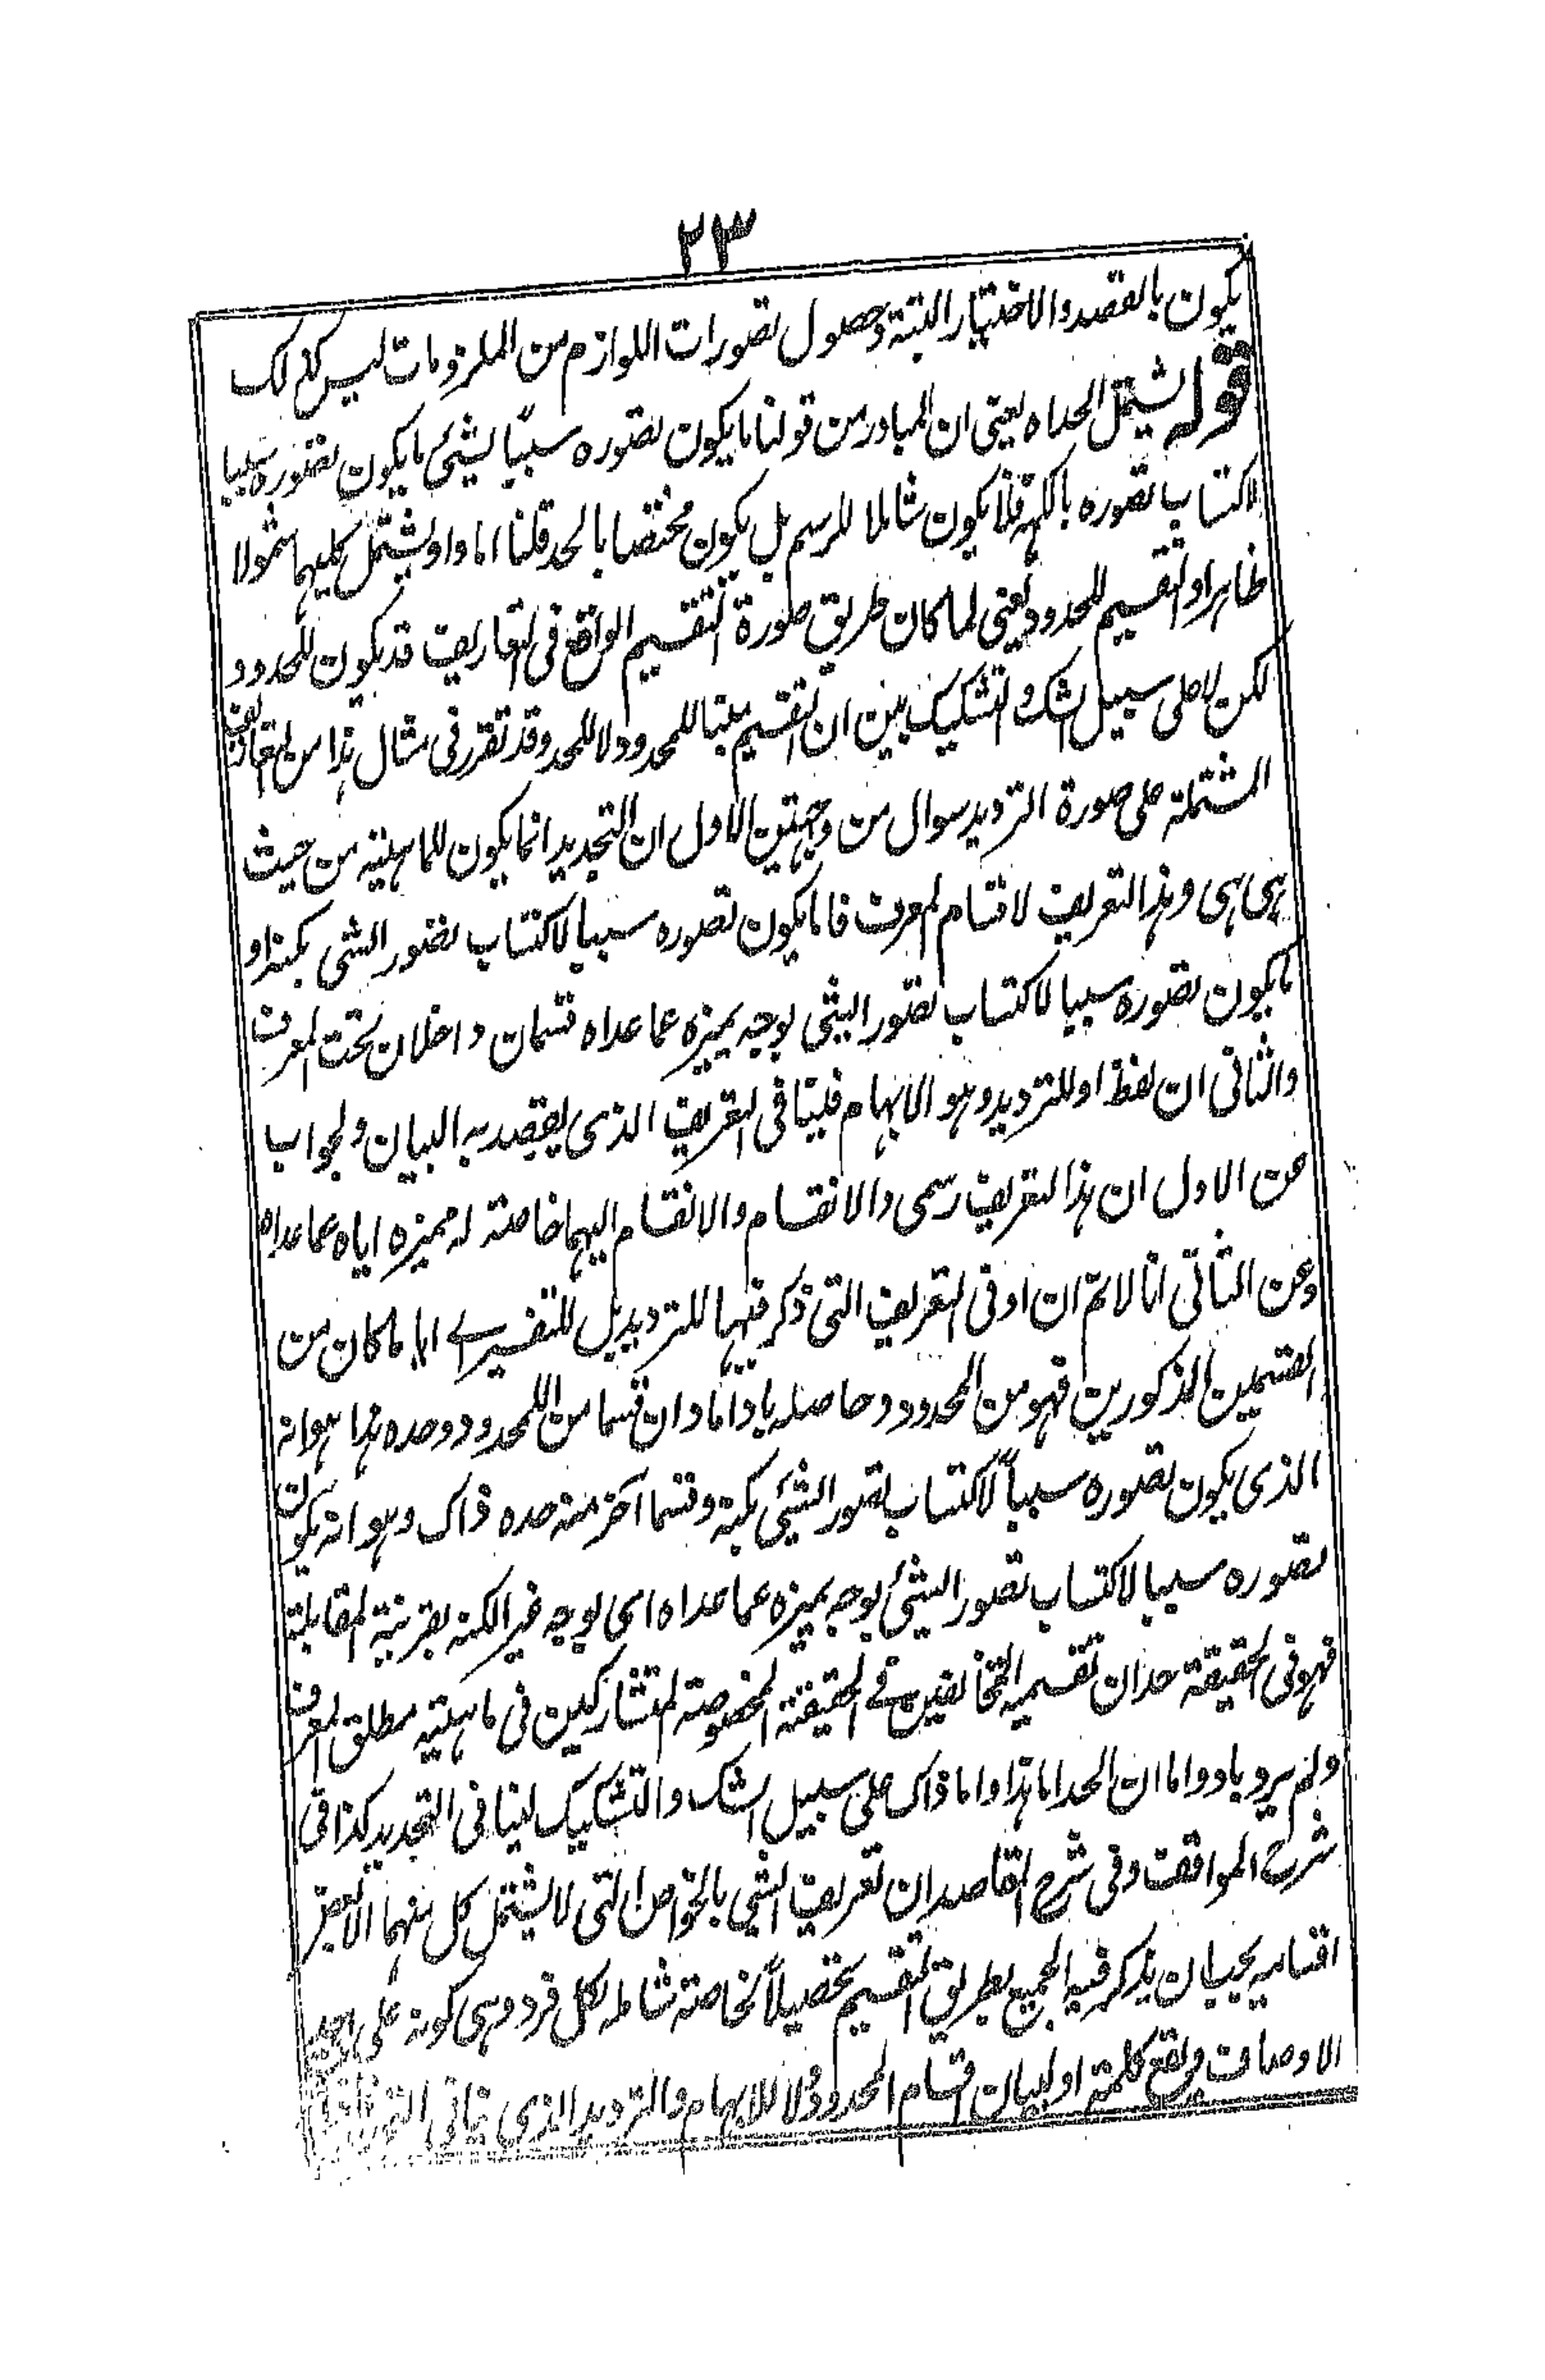 ٢٣
يكون بالقصد والاختيار البتة وحصول تصورات اللوازم من الملزومات ليس كذلك
قوله يشتمل الحد اه يعنى ان المبادر من قولنا ما يكون تصوره سببا لشئ ما يكون تصوره سببا
لاكتساب تصوره بالكنه فلا يكون شاملا للرسم بل يكون مختصا بالحد قلنا اما واو يشتمل كليهما شمولا
ظاهرا والتقسيم للمحدود يعنى لما كان طريق صورة التقسيم الواقع فى التعاريف قد يكون للمحدود
لكن لا على سبيل الشك والتشكيك بين ان التقسيم ههنا للمحدود لا للحد وقد تقرر فى مثال هذا من التعاريف
المشتملة على صورة الترديد سوال من وجهين الاول ان التحديد انما يكون للماهية من حيث
هى هى وهذا التعريف لاقسام المعرف فان ما يكون تصوره سببا لاكتساب تصور الشى بكنه او
ما يكون تصوره سببا لاكتساب تصور الشى بوجه يميزه عما عداه قسمان داخلان تحت المعرف
والثانى ان لفظ او للترديد وهو الابهام فينا فى التعريف الذى يقصد به البيان والجواب
عن الاول ان هذا التعريف رسمى والانقسام والانقسام اليهما خاصة له مميزه اياه عما عداه
وعن الثانى انا لا نم ان او فى التعريف التى ذكر فيها للترديد بل للتفسير اے ايا ما كان من
القسمين المذكورين فهو من المحدود وحاصله باد اما دان قسما من المحدود وحده هذا هو انه
الذى يكون تصوره سببا لاكتساب تصور الشئ بكنه وقسما آخر منه حده ذاك وهو انه يكون
تصوره سببا لاكتساب تصور الشئ بوجه يميزه عما عداه اى بوجه غير الكنه بقرينة المقابلة
فهو فى الحقيقة حدان لقسميه المتخالفين فى الحقيقة المخصوصة المتشاركين فى ماهية مطلق المعرف
ولم يرد باد واما ان الحد اما هذا واما ذاك على سبيل الشك والتشكيك لينا فى التحديد كذا فى
شرح المواقف وفى شرح المقاصد ان تعريف الشى بالخواص التى لا يشتمل كل منهما الا لبعض
اقسامه يجب ان يذكر فيه الجميع بطريق التقسيم تحصيلا لخاصة شاملة لكل فرد وهى كونه على احد
الاوصاف ويقع كلمة او لبيان اقسام المحدود لا للابهام والترديد الذى ينافى